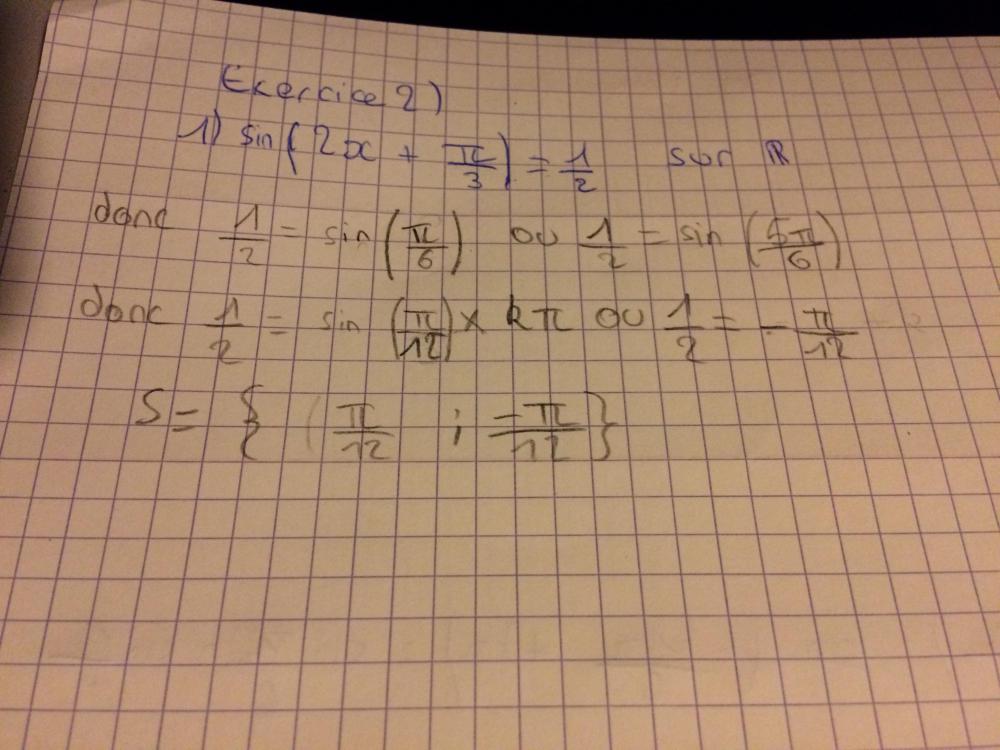 Exercice 2)
1) sin(2x + π/3) = 1/2 sur ℝ
donc 1/2 = sin(π/6) ou 1/2 = sin(5π/6)
donc 1/2 = sin(π/12) × kπ ou 1/2 = -π/12
S = { π/12 ; -π/12 }